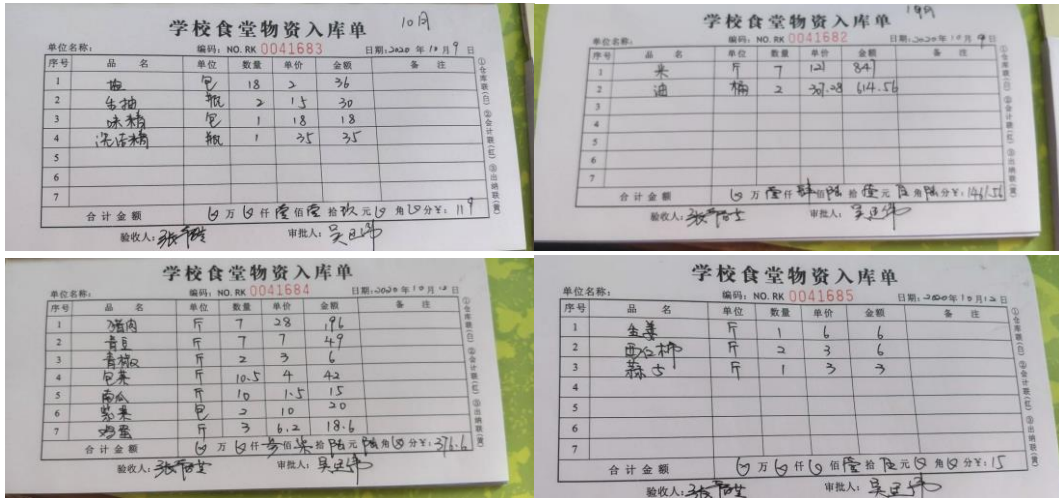 学校食堂物资入库单 10月
单位名称： 编码：NO. RK 0041683 日期：2020年10月9日
序号 品名 单位 数量 单价 金额 备注
1 包 18 2 36
2 生抽 瓶 2 15 30
3 味精 包 1 18 18
4 洗洁精 瓶 1 35 35
5
6
7
合计金额 万 仟 壹佰 壹拾 玖元 角 分￥：119
验收人： 审批人：
①仓库联(白) ②会计联(红) ③出纳联(黄)
学校食堂物资入库单
单位名称： 编码：NO. RK 0041682 日期：2020年10月9日
序号 品名 单位 数量 单价 金额 备注
1 米 斤 7 121 847
2 油 桶 2 307.28 614.56
3
4
5
6
7
合计金额 万 壹仟 肆佰 陆拾 壹元 伍角 陆分￥：1461.56
验收人： 审批人：
①仓库联(白) ②会计联(红) ③出纳联(黄)
学校食堂物资入库单
单位名称： 编码：NO. RK 0041684 日期：2020年10月12日
序号 品名 单位 数量 单价 金额 备注
1 猪肉 斤 7 28 196
2 青豆 斤 7 7 49
3 青椒 斤 2 3 6
4 包菜 斤 10.5 4 42
5 南瓜 斤 10 1.5 15
6 紫菜 包 2 10 20
7 鸡蛋 斤 3 6.2 18.6
合计金额 万 仟 叁佰 柒拾 陆元 陆角 分￥：376.6
验收人： 审批人：
①仓库联(白) ②会计联(红) ③出纳联(黄)
学校食堂物资入库单
单位名称： 编码：NO. RK 0041685 日期：2020年10月12日
序号 品名 单位 数量 单价 金额 备注
1 生姜 斤 1 6 6
2 西红柿 斤 2 3 6
3 蒜 斤 1 3 3
4
5
6
7
合计金额 万 仟 佰 壹拾 伍元 角 分￥：15
验收人： 审批人：
①仓库联(白) ②会计联(红) ③出纳联(黄)